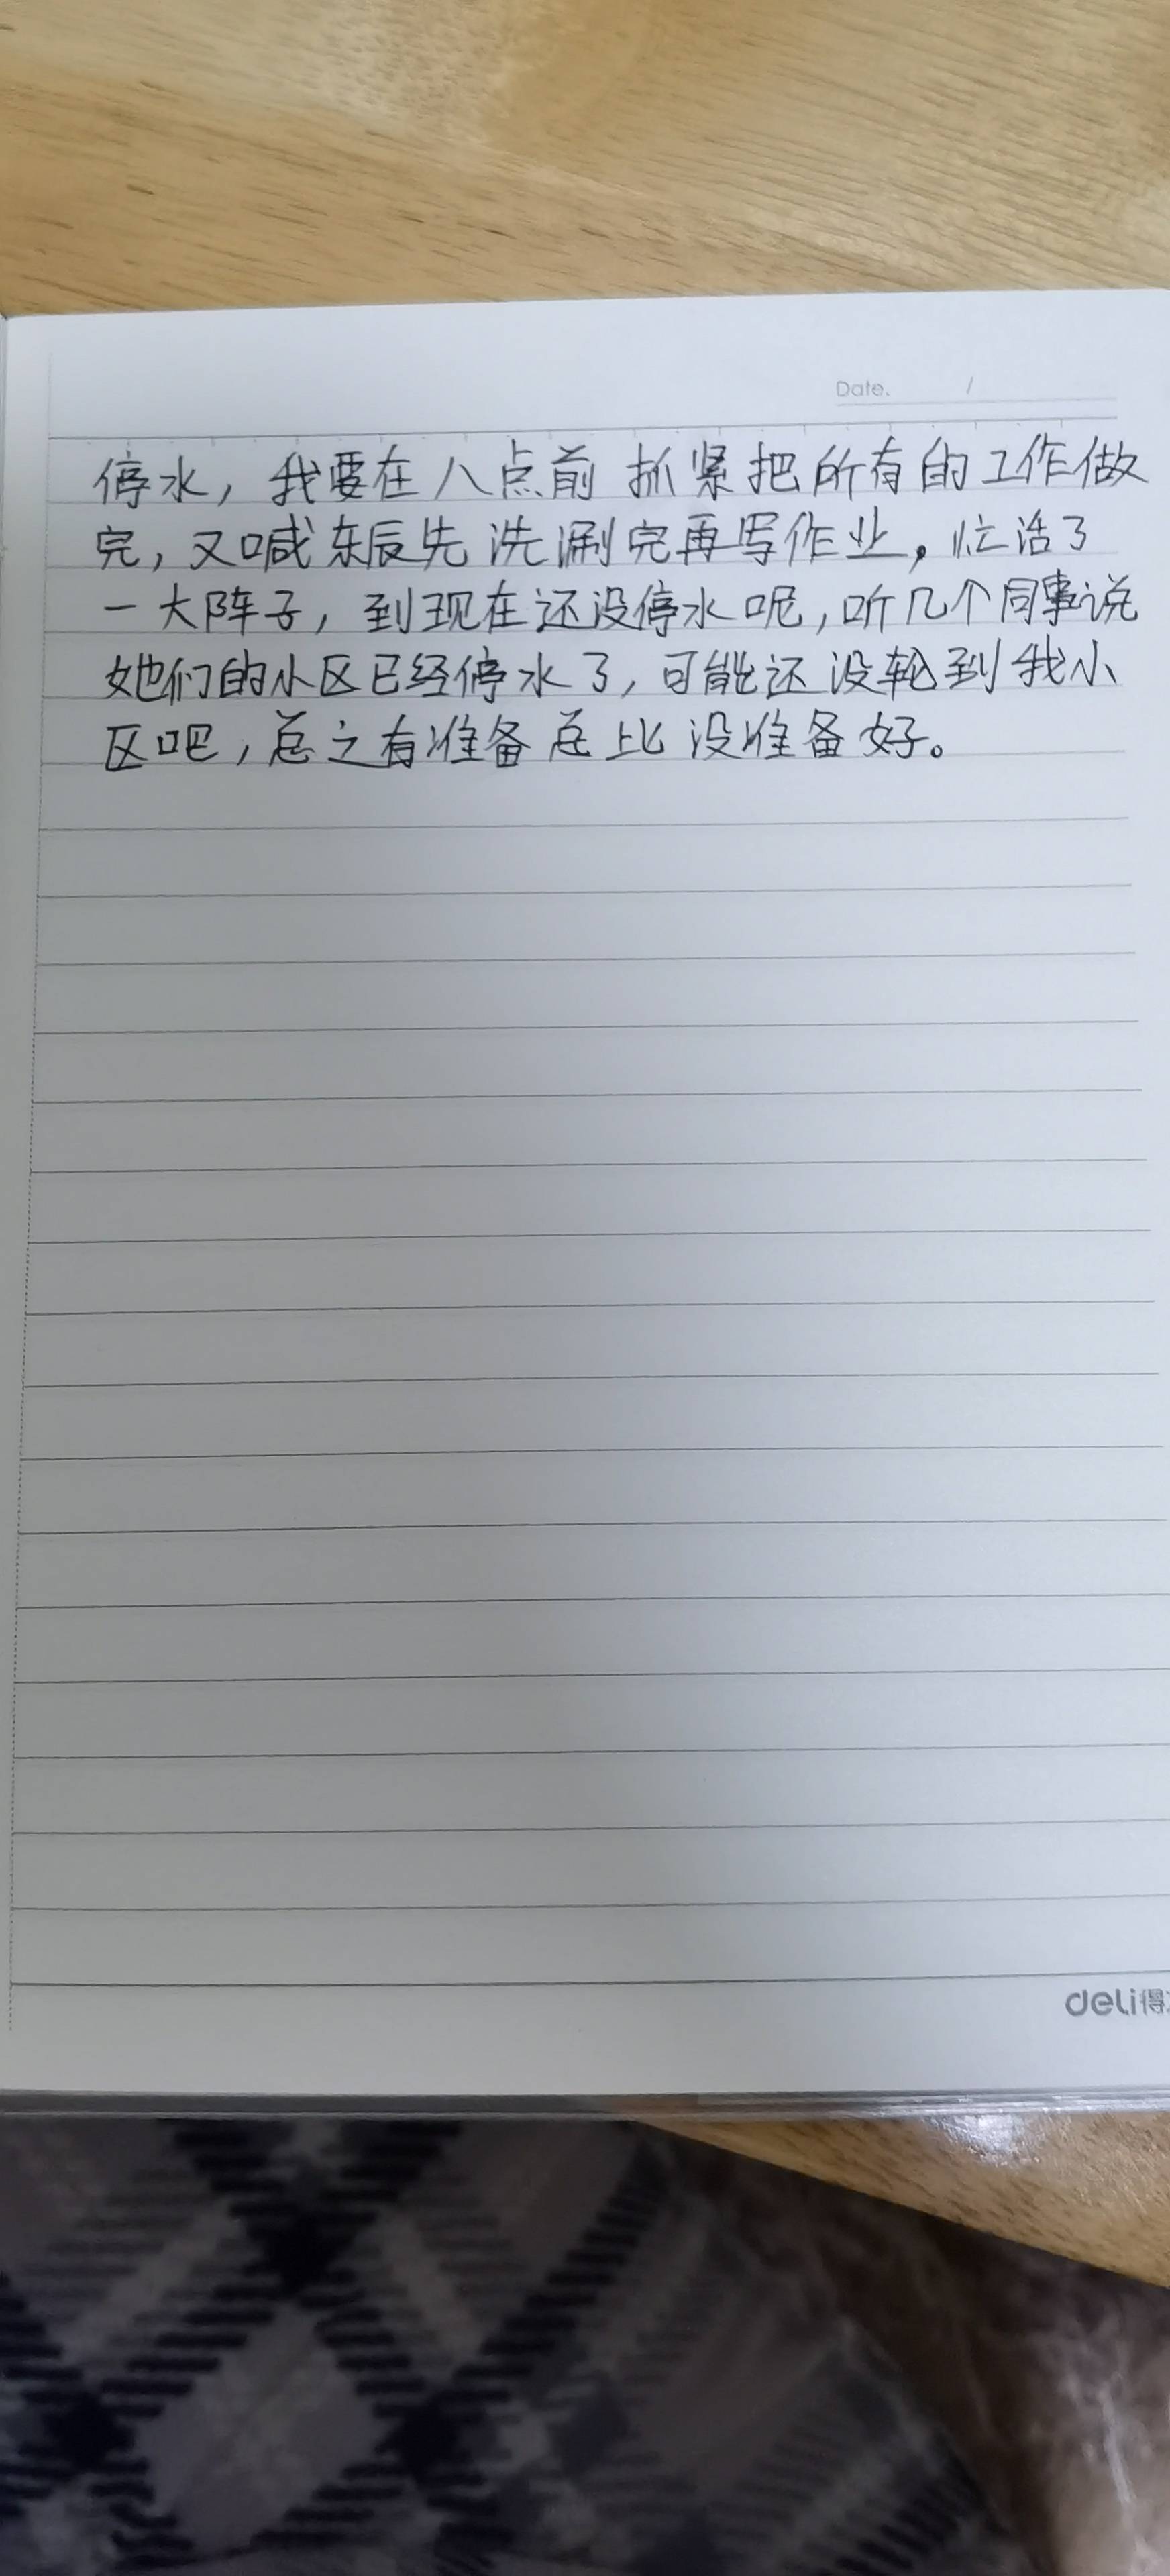 Date. /
停水，我要在八点前抓紧把所有的工作做
完，又喊东辰先洗涮完再写作业，忙活了
一大阵子，到现在还没停水呢，听几个同事说
她们的小区已经停水了，可能还没轮到我小
区吧，总之有准备总比没准备好。
deli得